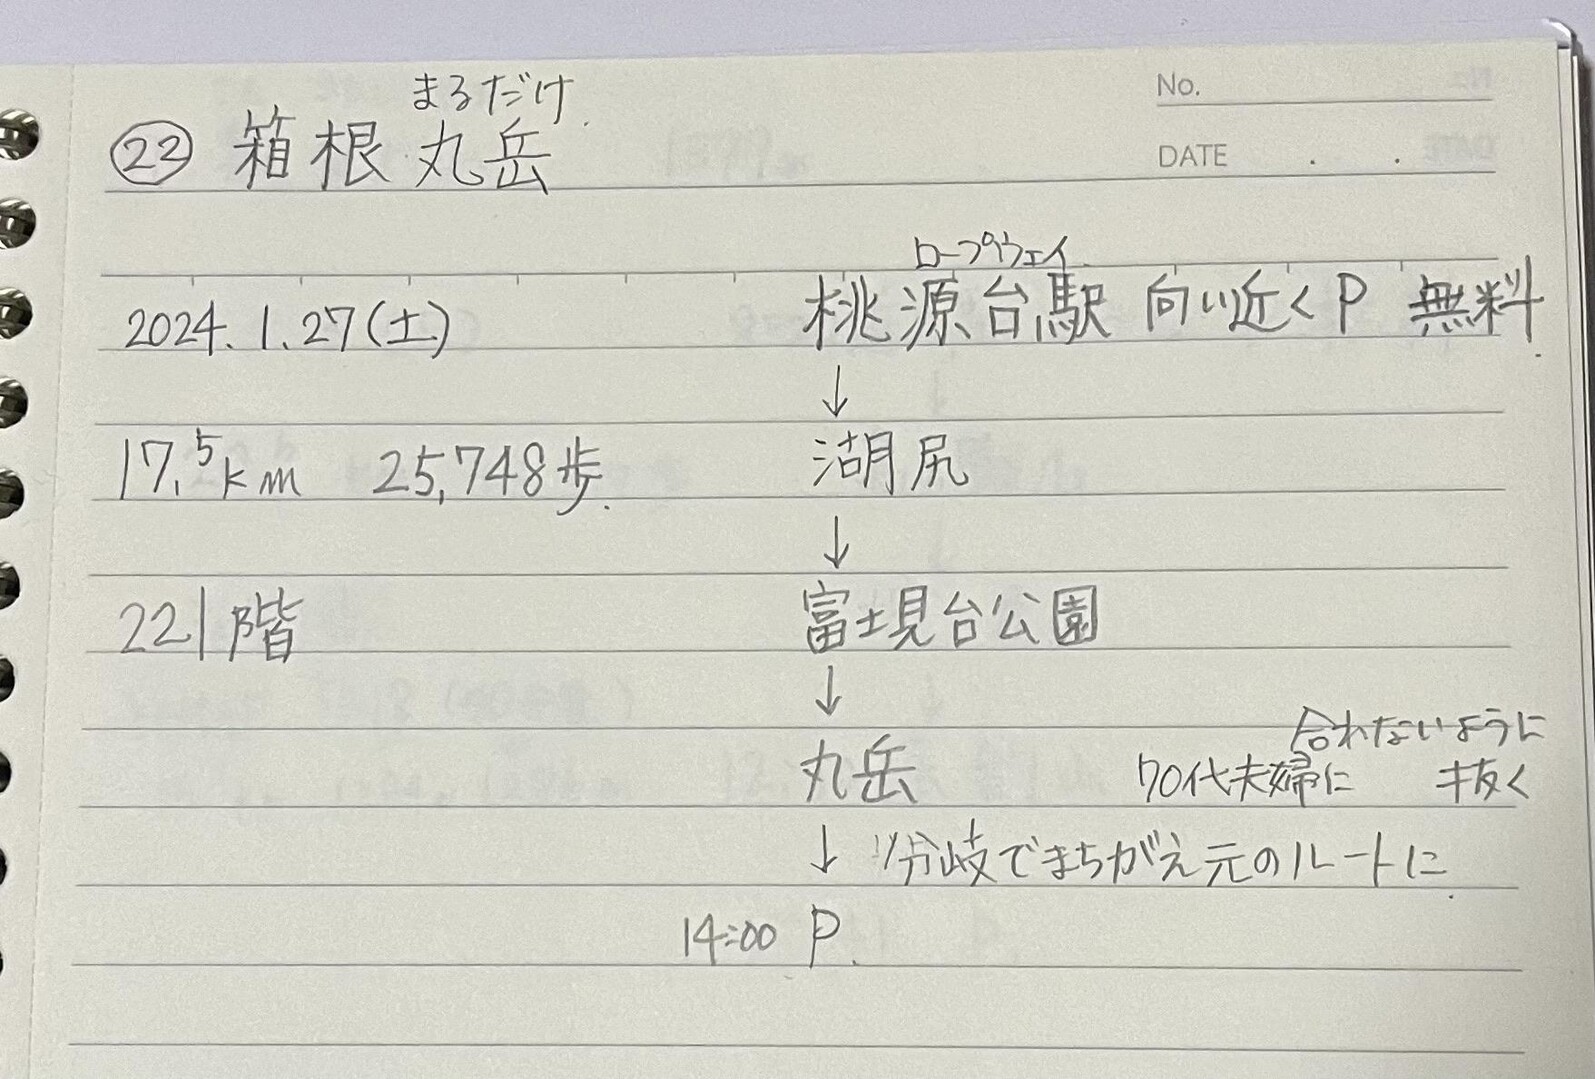 まるだけ
㉒ 箱根 丸岳
No.
DATE . .
ロープウェイ
2024.1.27(土)
桃源台駅 向い近くP 無料
↓
17.5km 25,748歩
湖尻
↓
221階
富士見台公園
↓
合れないように
丸岳 70代夫婦に 抜く
↓ 分岐でまちがえ元のルートに
14:00 P.